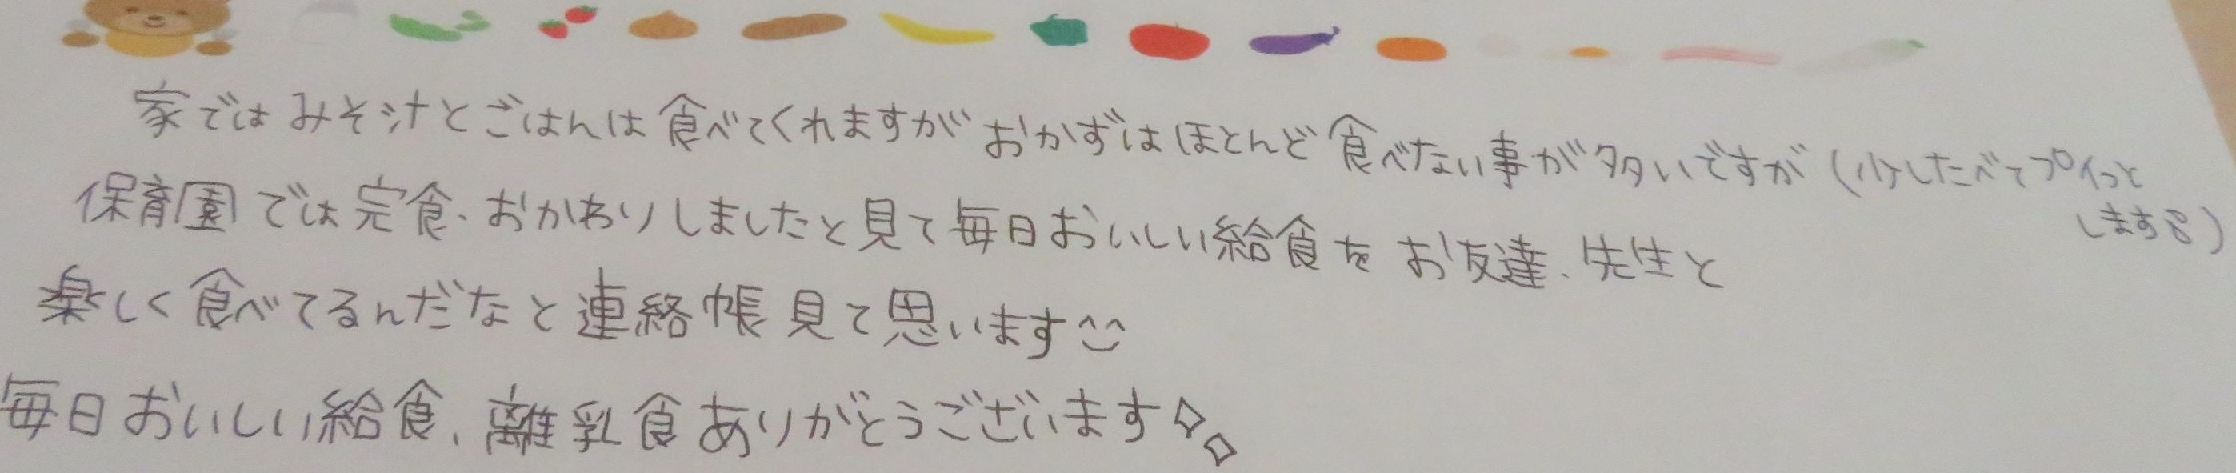 家ではみそ汁とごはんは食べてくれますがおかずはほとんど食べない事が多いですが(少したべてプイっと
します)
保育園では完食、おかわりしましたと見て毎日おいしい給食をお友達、先生と
楽しく食べてるんだなと連絡帳見て思います
毎日おいしい給食、離乳食ありがとうございます